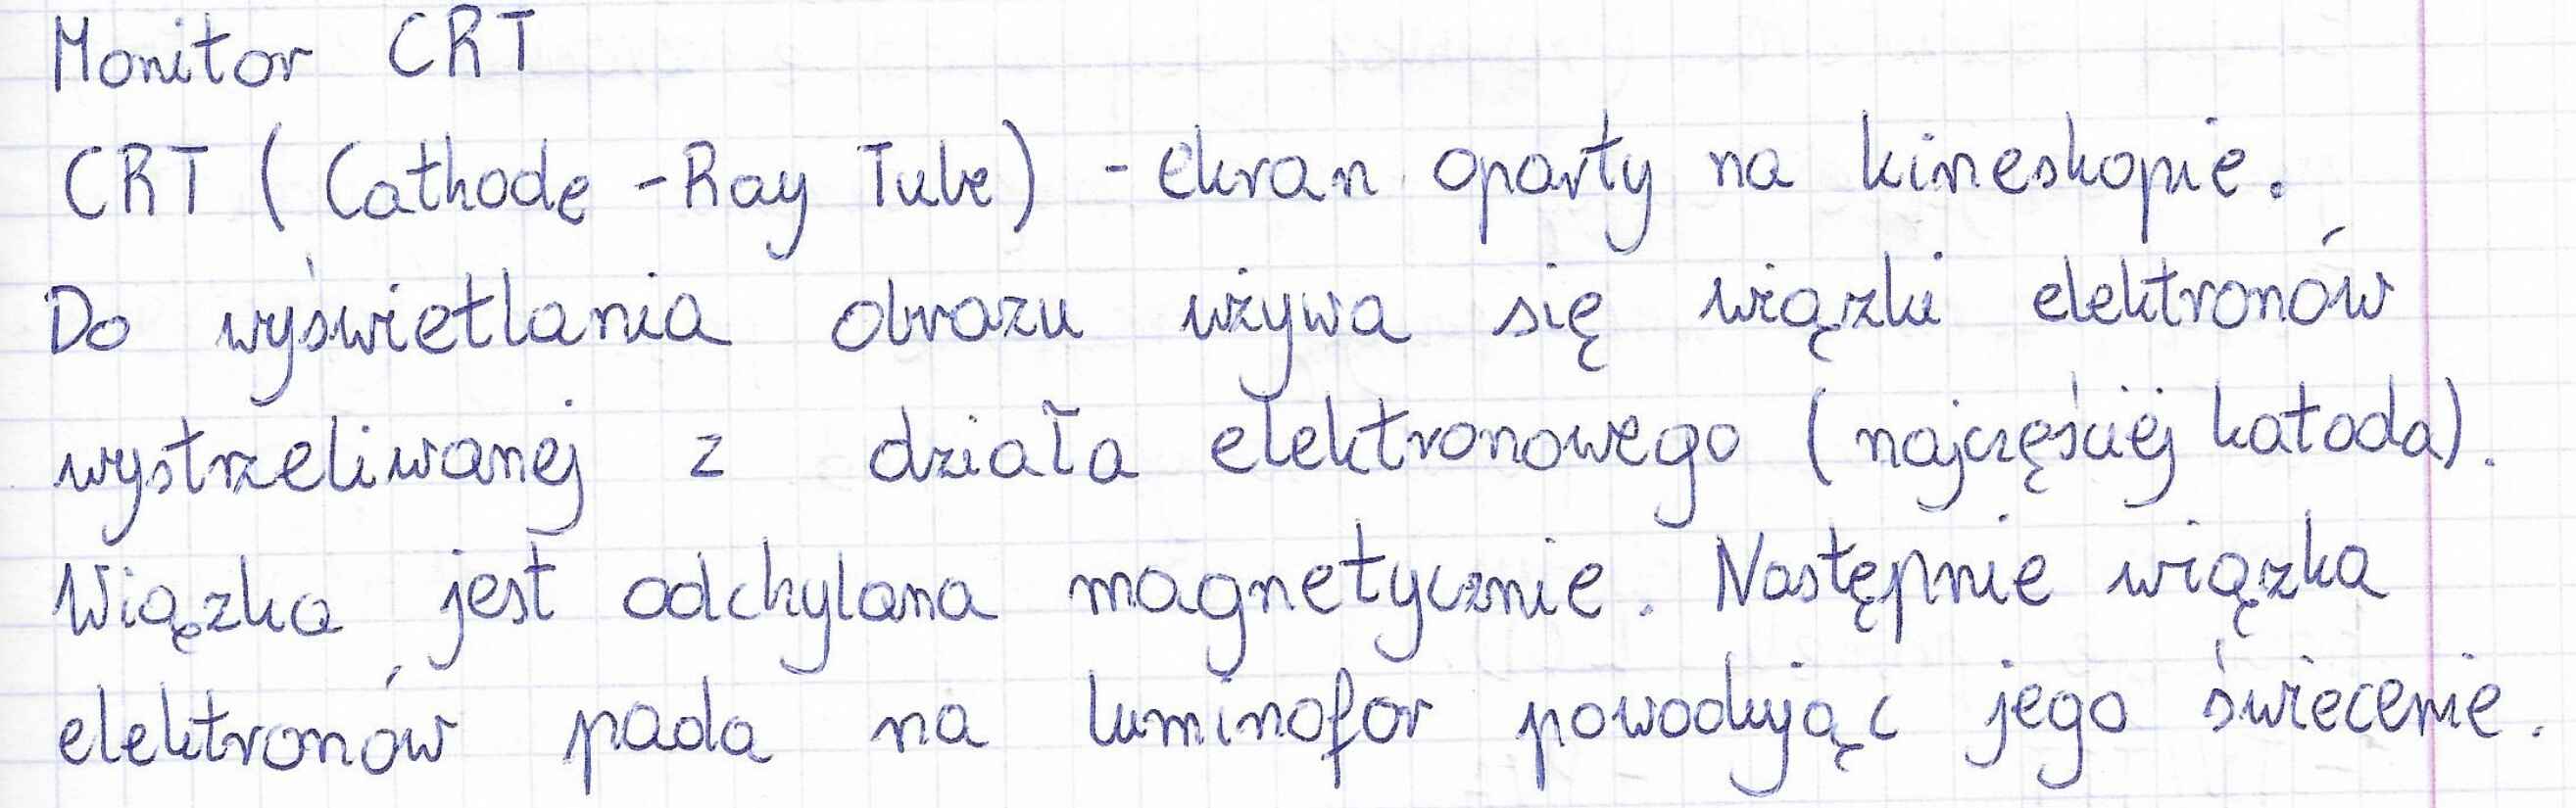 Monitor CRT
CRT (Cathode - Ray Tube) - ekran oparty na kineskopie.
Do wyświetlania obrazu używa się wiązki elektronów
wystrzeliwanej z działa elektronowego (najczęściej katoda).
Wiązka jest odchylana magnetycznie. Następnie wiązka
elektronów pada na luminofor powodując jego świecenie.